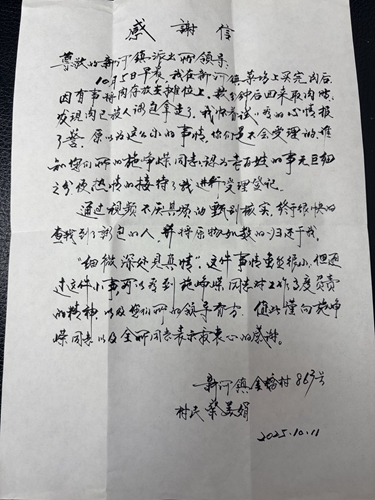 感謝信
尊敬的新河镇派出所领导:
10月5日早晨,我在新河镇菜场上买完肉后,
因有事将肉存放在摊位上,数分钟后回来取肉时,
发现肉已被人调包拿走了,我怀着试试看的心情报
了警。原以为这么小的事情,你们是不会受理的,谁
知你们所的施峥嵘同志认为老百姓的事无巨细
之分便热情的接待了我进行受理登记。
通过视频不厌其烦的甄别核实,终于很快的
查找到了彩包的人,并将原物如数的归还于我。
"细微深处见真情",这件事情虽然很小,但通
过这件小事可以看到施峥嵘同志对工作高度负责
的精神,以及你们所的领导有方。值此谨向施峥
嵘同志以及全所同志表示最衷心的感谢。
新河镇金村863号
村民 蔡美娟
2025.10.11